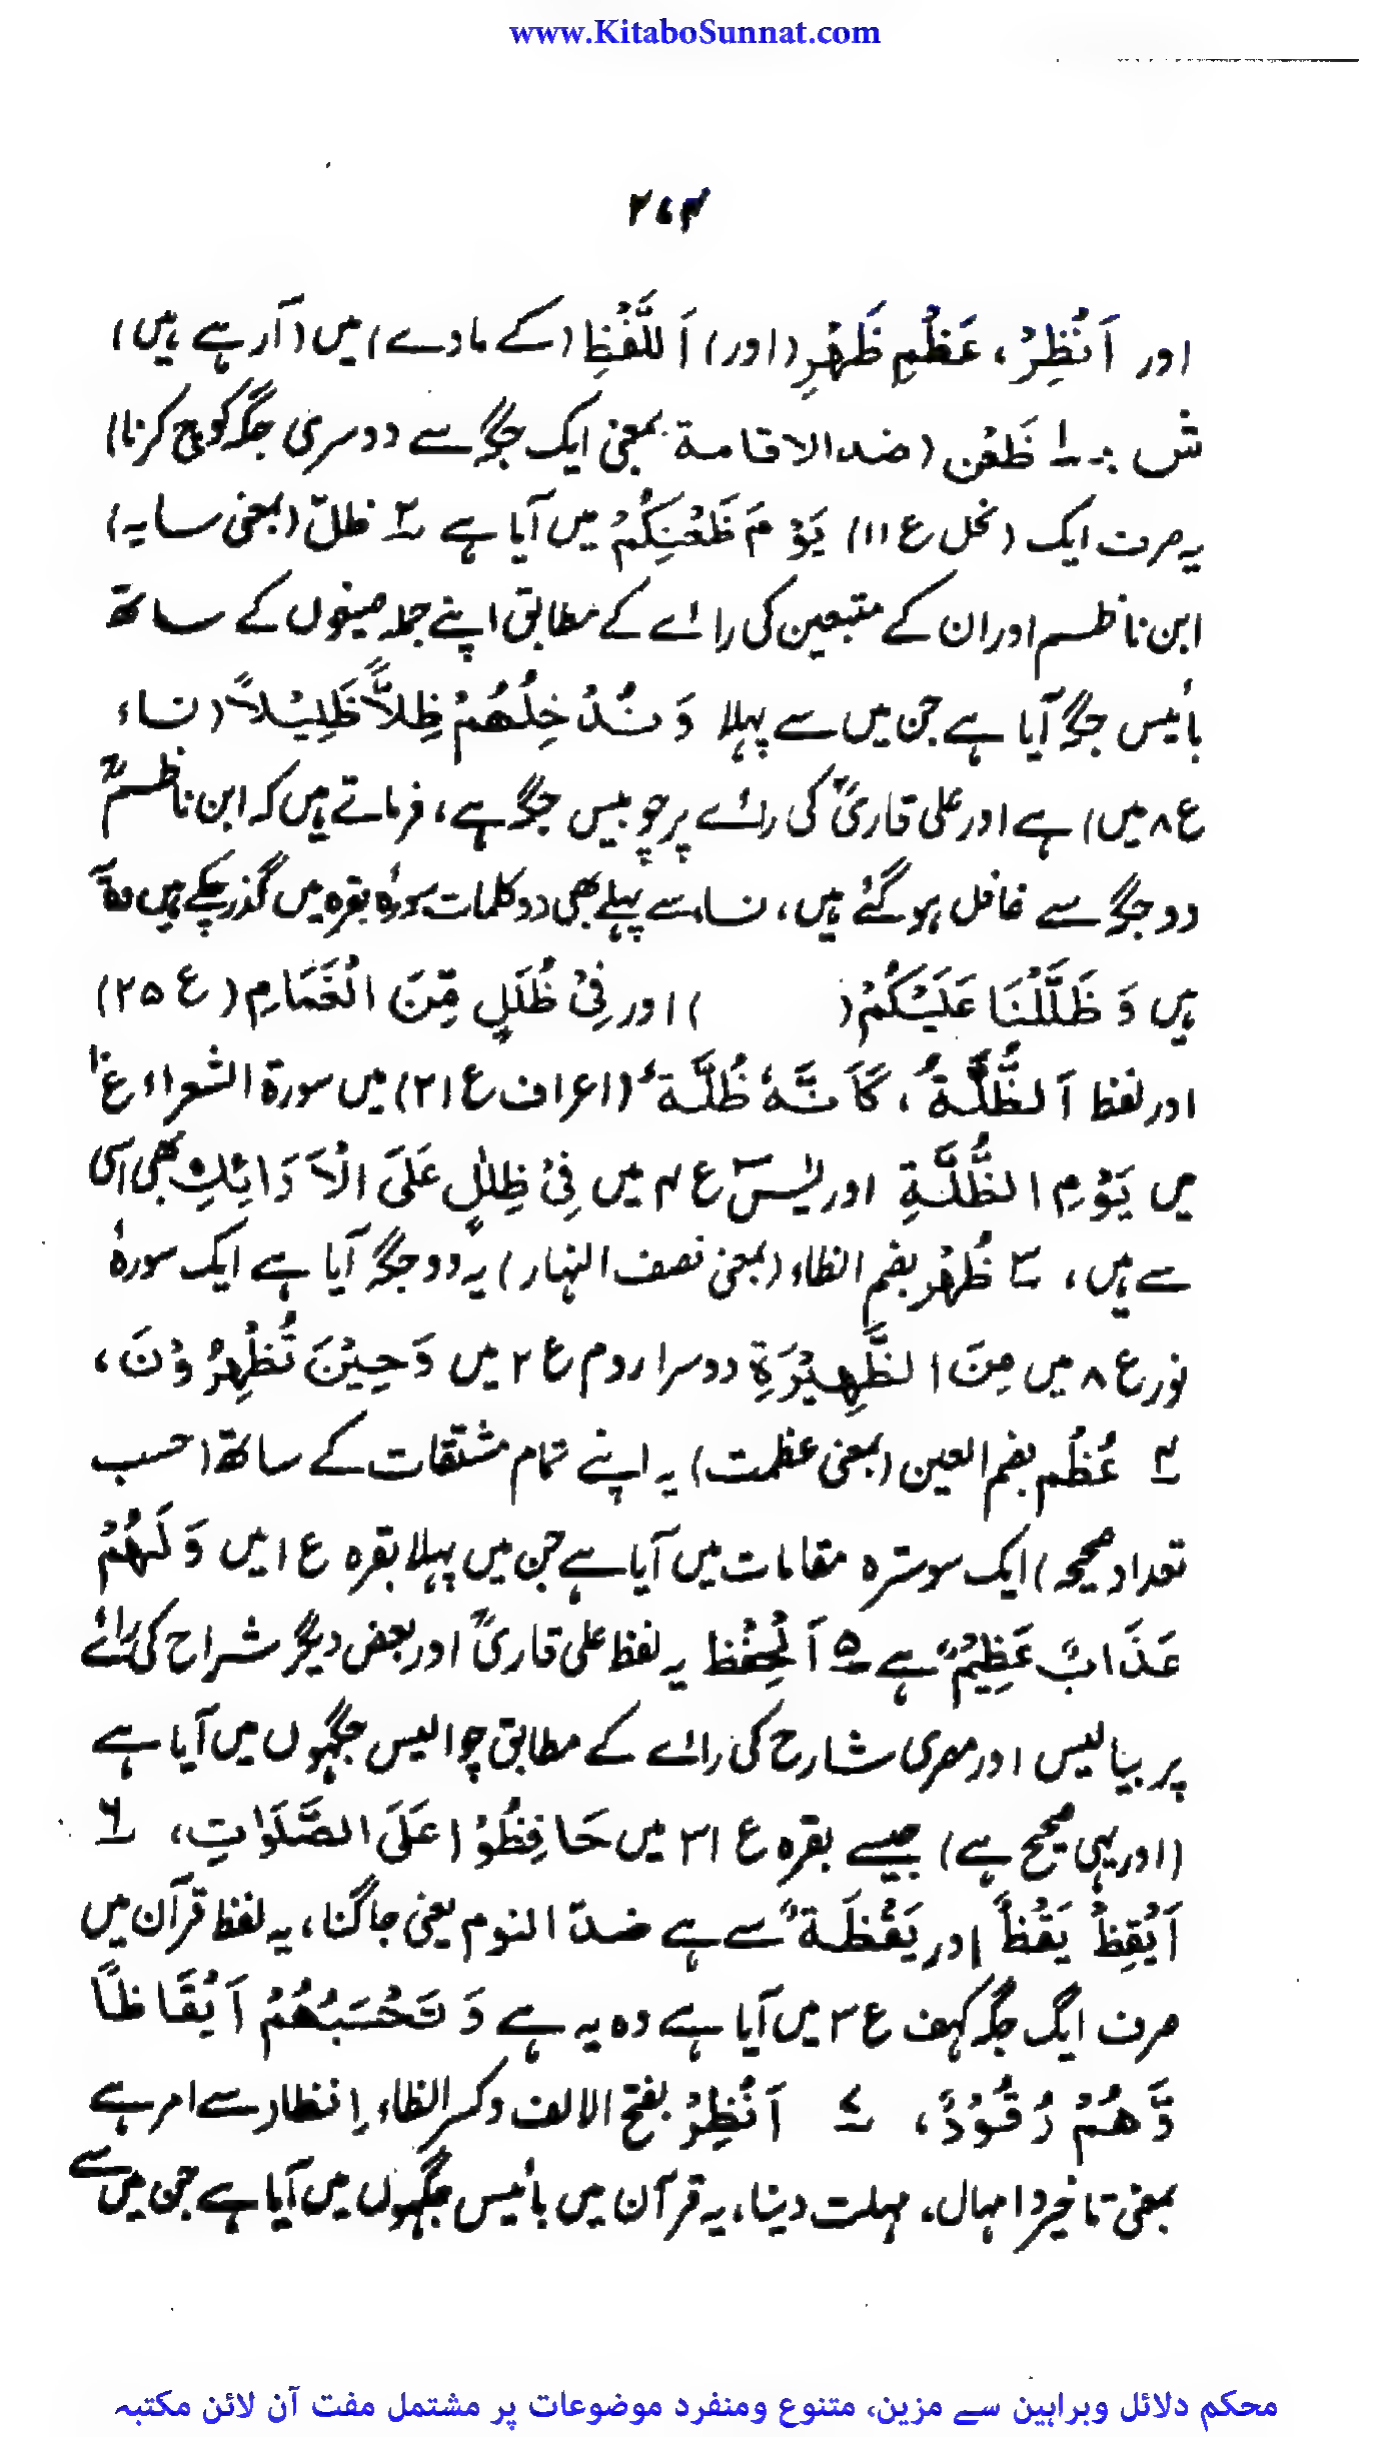 www.KitaboSunnat.com
۲۶۴
اور اَنْظِرْ، عَظْمِ ظَهْرٍ (اور) اَللَّفْظِ (کے مادے) میں (آرہے ہیں)
ش :۔ ۱؎ ظَعْن (ضد الاقامة بمعنی ایک جگہ سے دوسری جگہ کوچ کرنا)
یہ صرف ایک (نحل ع ۱۱) یَوْمَ ظَعْنِكُمْ میں آیا ہے ۲؎ ظلّ (بمعنی سایہ)
ابن ناظم اور ان کے متبعین کی رائے کے مطابق اپنے جملہ صیغوں کے ساتھ
بائیس جگہ آیا ہے جن میں سے پہلا وَ نُدْخِلُهُمْ ظِلاًّ ظَلِيْلاً (نساء
ع ۸ میں) ہے اور علی قاریؒ کی رائے پر چوبیس جگہ ہے، فرماتے ہیں کہ ابن ناظمؒ
دو جگہ سے غافل ہو گئے ہیں، نساء سے پہلے بھی دو کلمات سورۂ بقرہ میں گذر چکے ہیں وہ
ہیں وَ ظَلَّلْنَا عَلَيْكُمْ ( ) اور فِیْ ظُلَلٍ مِّنَ الْغَمَامِ (ع ۲۵)
اور لفظ اَلظُّلَّةُ، كَاَنَّهٗ ظُلَّةٌ (اعراف ع ۲۱) میں سورة الشعراء ع ۱۰
میں یَوْمِ الظُّلَّةِ اور یٰسٓ ع ۴ میں فِیْ ظِلٰلٍ عَلَی الْاَرَائِكِ بھی اسی
سے ہیں، ۳؎ ظُهْر بضم الظاء (بمعنی نصف النہار) یہ دو جگہ آیا ہے ایک سورۂ
نور ع ۸ میں مِنَ الظَّهِيْرَةِ دوسرا روم ع ۲ میں وَحِيْنَ تُظْهِرُوْنَ،
۴؎ عُظْم بضم العین (بمعنی عظمت) یہ اپنے تمام مشتقات کے ساتھ (حسب
تعداد صحیحہ) ایک سو سترہ مقامات میں آیا ہے جن میں پہلا بقرہ ع ۱ میں وَ لَهُمْ
عَذَابٌ عَظِيْمٌ ہے ۵؎ اَلْحِفْظ یہ لفظ علی قاریؒ اور بعض دیگر شراح کی رائے
پر بیالیس اور مصری شارح کی رائے کے مطابق چوالیس جگہوں میں آیا ہے
(اور یہی صحیح ہے) جیسے بقرہ ع ۳۱ میں حَافِظُوْا عَلَی الصَّلَوٰاتِ، ۶؎
اَيْقِظْ يَقْظًا اور يَقْظَةً سے ہے ضدّ النوم یعنی جاگنا، یہ لفظ قرآن میں
صرف ایگ جگہ کہف ع ۳ میں آیا ہے وہ یہ ہے وَ تَحْسَبُهُمْ اَيْقَاظًا
وَّهُمْ رُقُوْدٌ، ۷؎ اَنْظِرْ بفتح الالف وکسر الظاء اِنظار سے امر ہے
بمعنی تاخیر و امہال، مہلت دینا، یہ قرآن میں بائیس جگہوں میں آیا ہے جن میں سے
محکم دلائل وبراہین سے مزین، متنوع ومنفرد موضوعات پر مشتمل مفت آن لائن مکتبہ